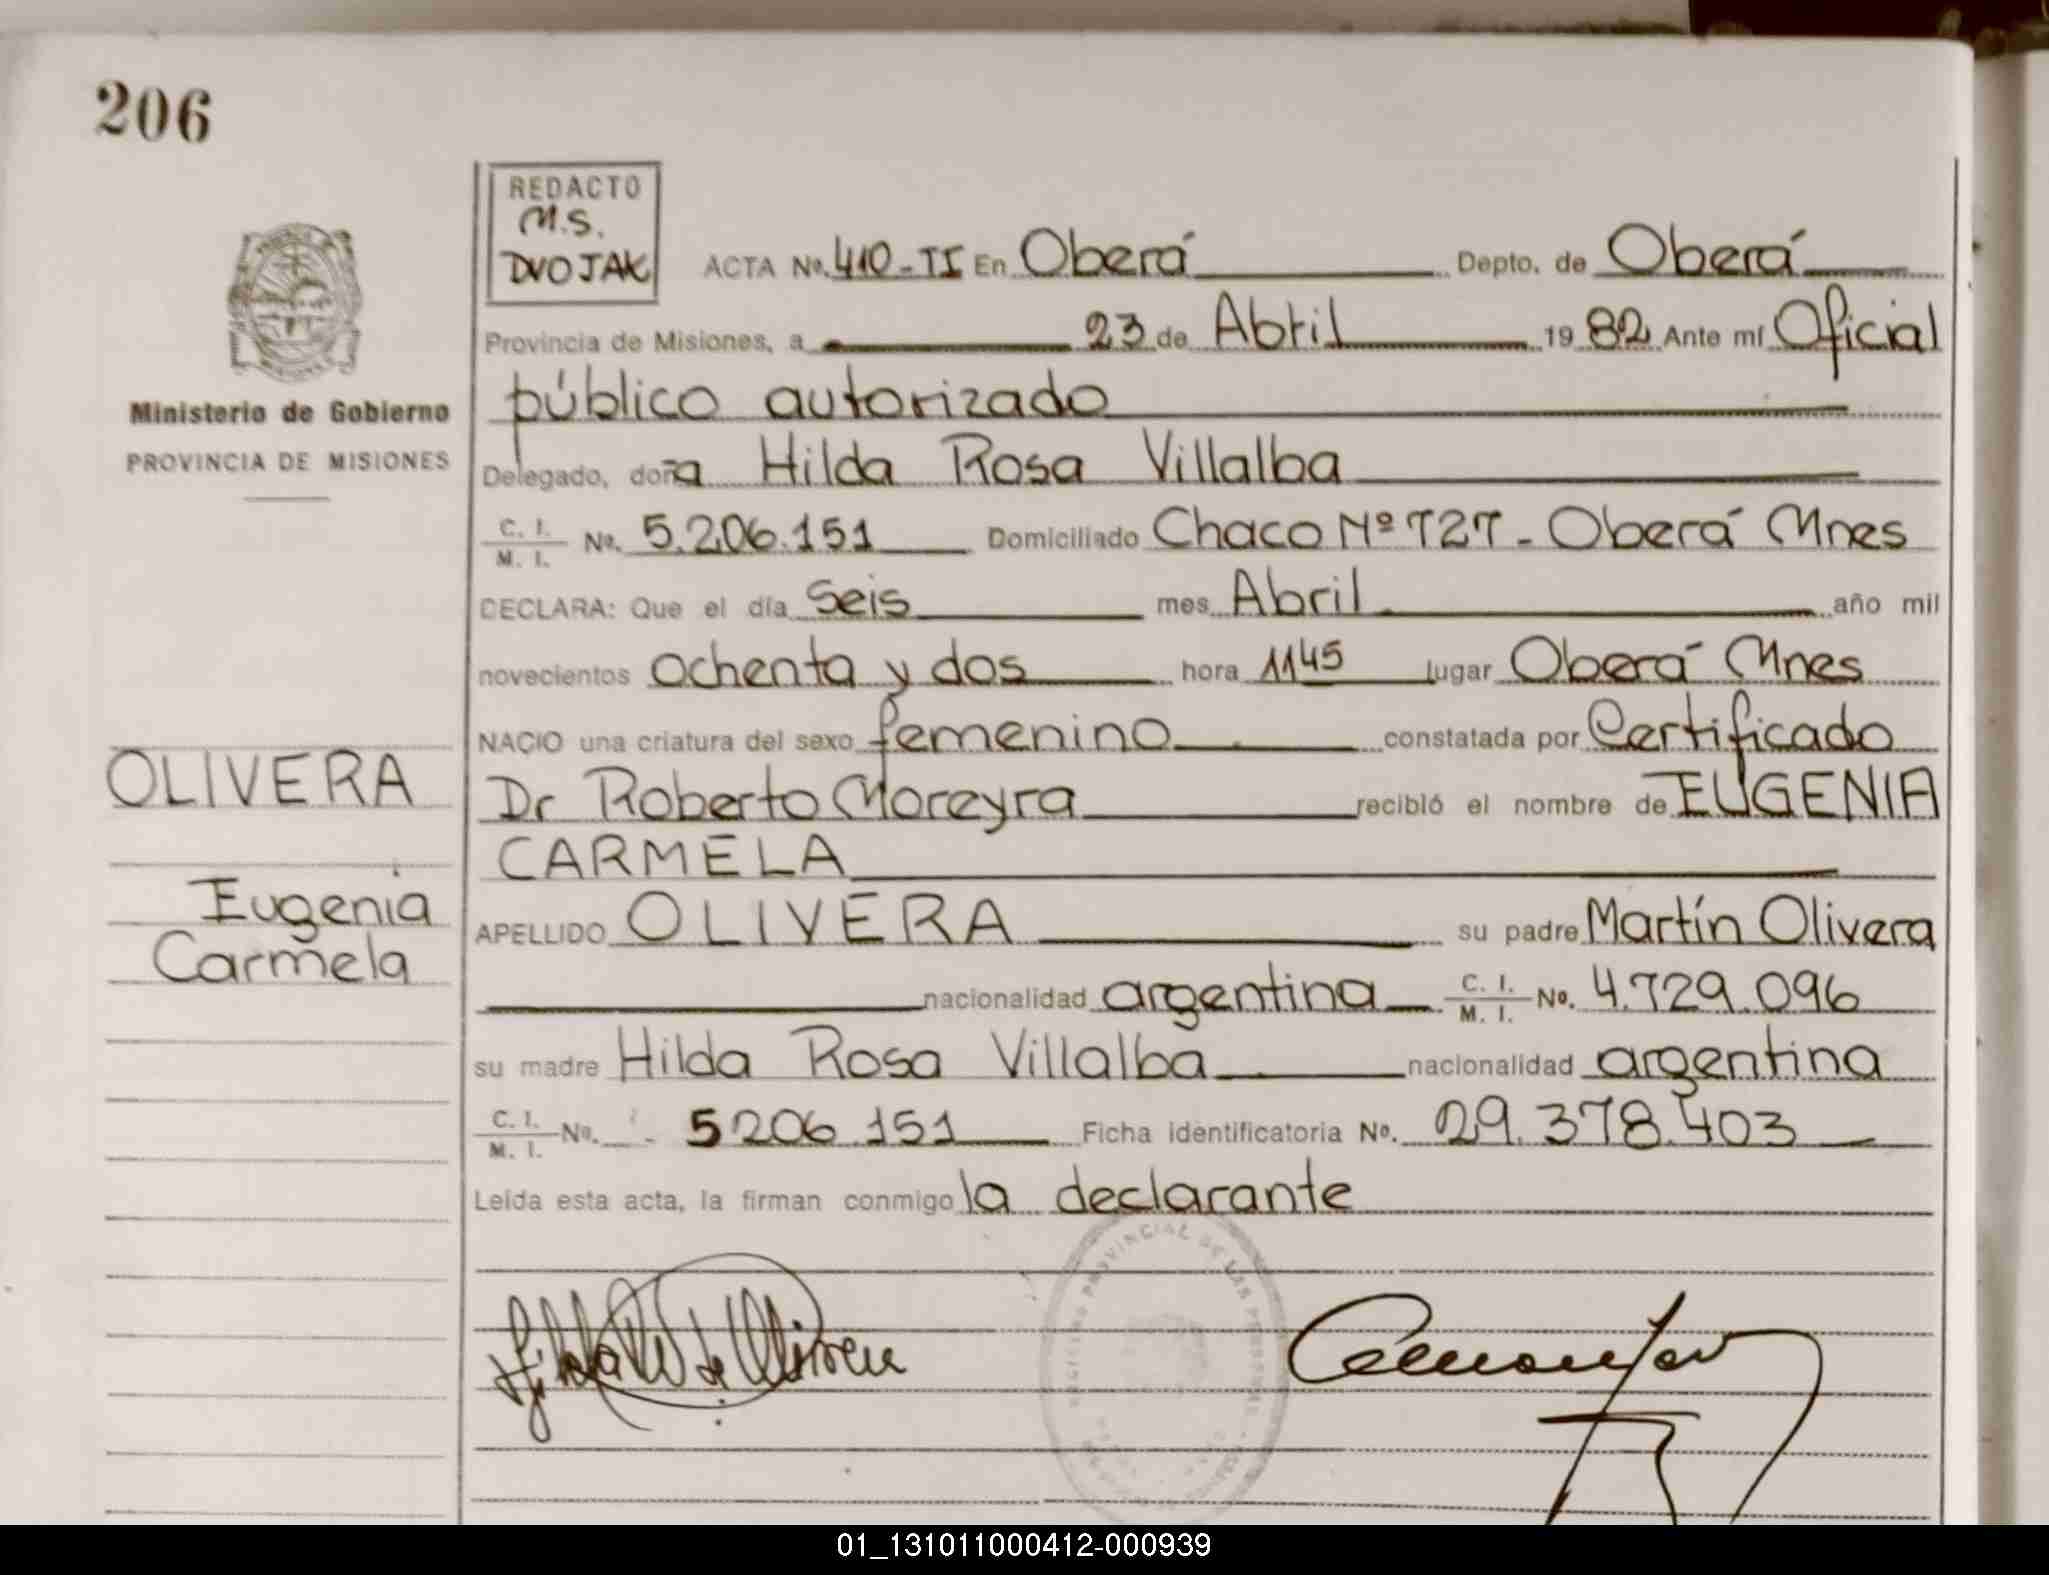 206
REDACTO
M.S.
DVOJAK
ACTA No. 410-TI En Oberá Depto. de Oberá
Provincia de Misiones, a 23 de Abril 1982 Ante mí Oficial
público autorizado
Delegado, doña Hilda Rosa Villalba
C. I.
M. I. No. 5.206.151 Domiciliado Chaco Nº 727 - Oberá Mnes
DECLARA: Que el día Seis mes Abril año mil
novecientos ochenta y dos hora 1145 lugar Oberá Mnes
NACIO una criatura del sexo femenino constatada por Certificado
Dr Roberto Moreyra recibió el nombre de EUGENIA
CARMELA
APELLIDO OLIVERA su padre Martín Olivera
nacionalidad argentina C. I.
M. I. No. 4.729.096
su madre Hilda Rosa Villalba nacionalidad argentina
C. I.
M. I. No. 5 206.151 Ficha identificatoria No. 29.378.403
Leída esta acta, la firman conmigo la declarante
Ministerio de Gobierno
PROVINCIA DE MISIONES
OLIVERA
Eugenia
Carmela
PROVINCIAL DE LAS PERSONAS
01_131011000412-000939